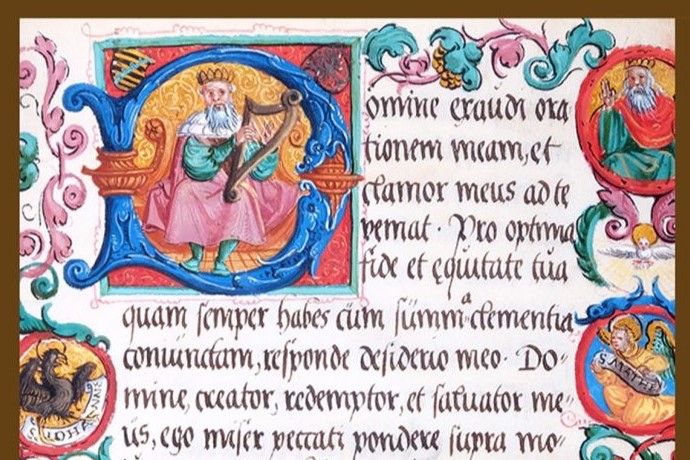 Domine exaudi ora
tionem meam, et
clamor meus ad te
veniat. Pro optima
fide et ęquitate tua
quam semper habes cūm sūmma clementia
coniunctam, responde desiderio meo. Do-
mine, creator, redemptor, et salvator me-
us, ego miser peccati pondere supra mo-
S. IOHANNES
S. MATHE